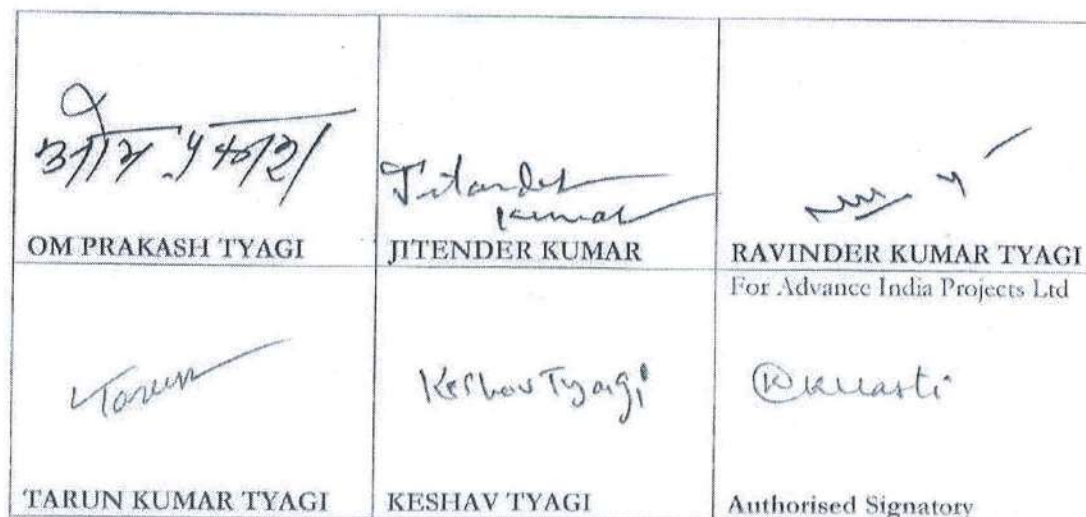 ओम प्रकाश
OM PRAKASH TYAGI
Jitander
Kumar
JITENDER KUMAR
RAVINDER KUMAR TYAGI
Tarun
TARUN KUMAR TYAGI
Keshav Tyagi
KESHAV TYAGI
For Advance India Projects Ltd
Authorised Signatory